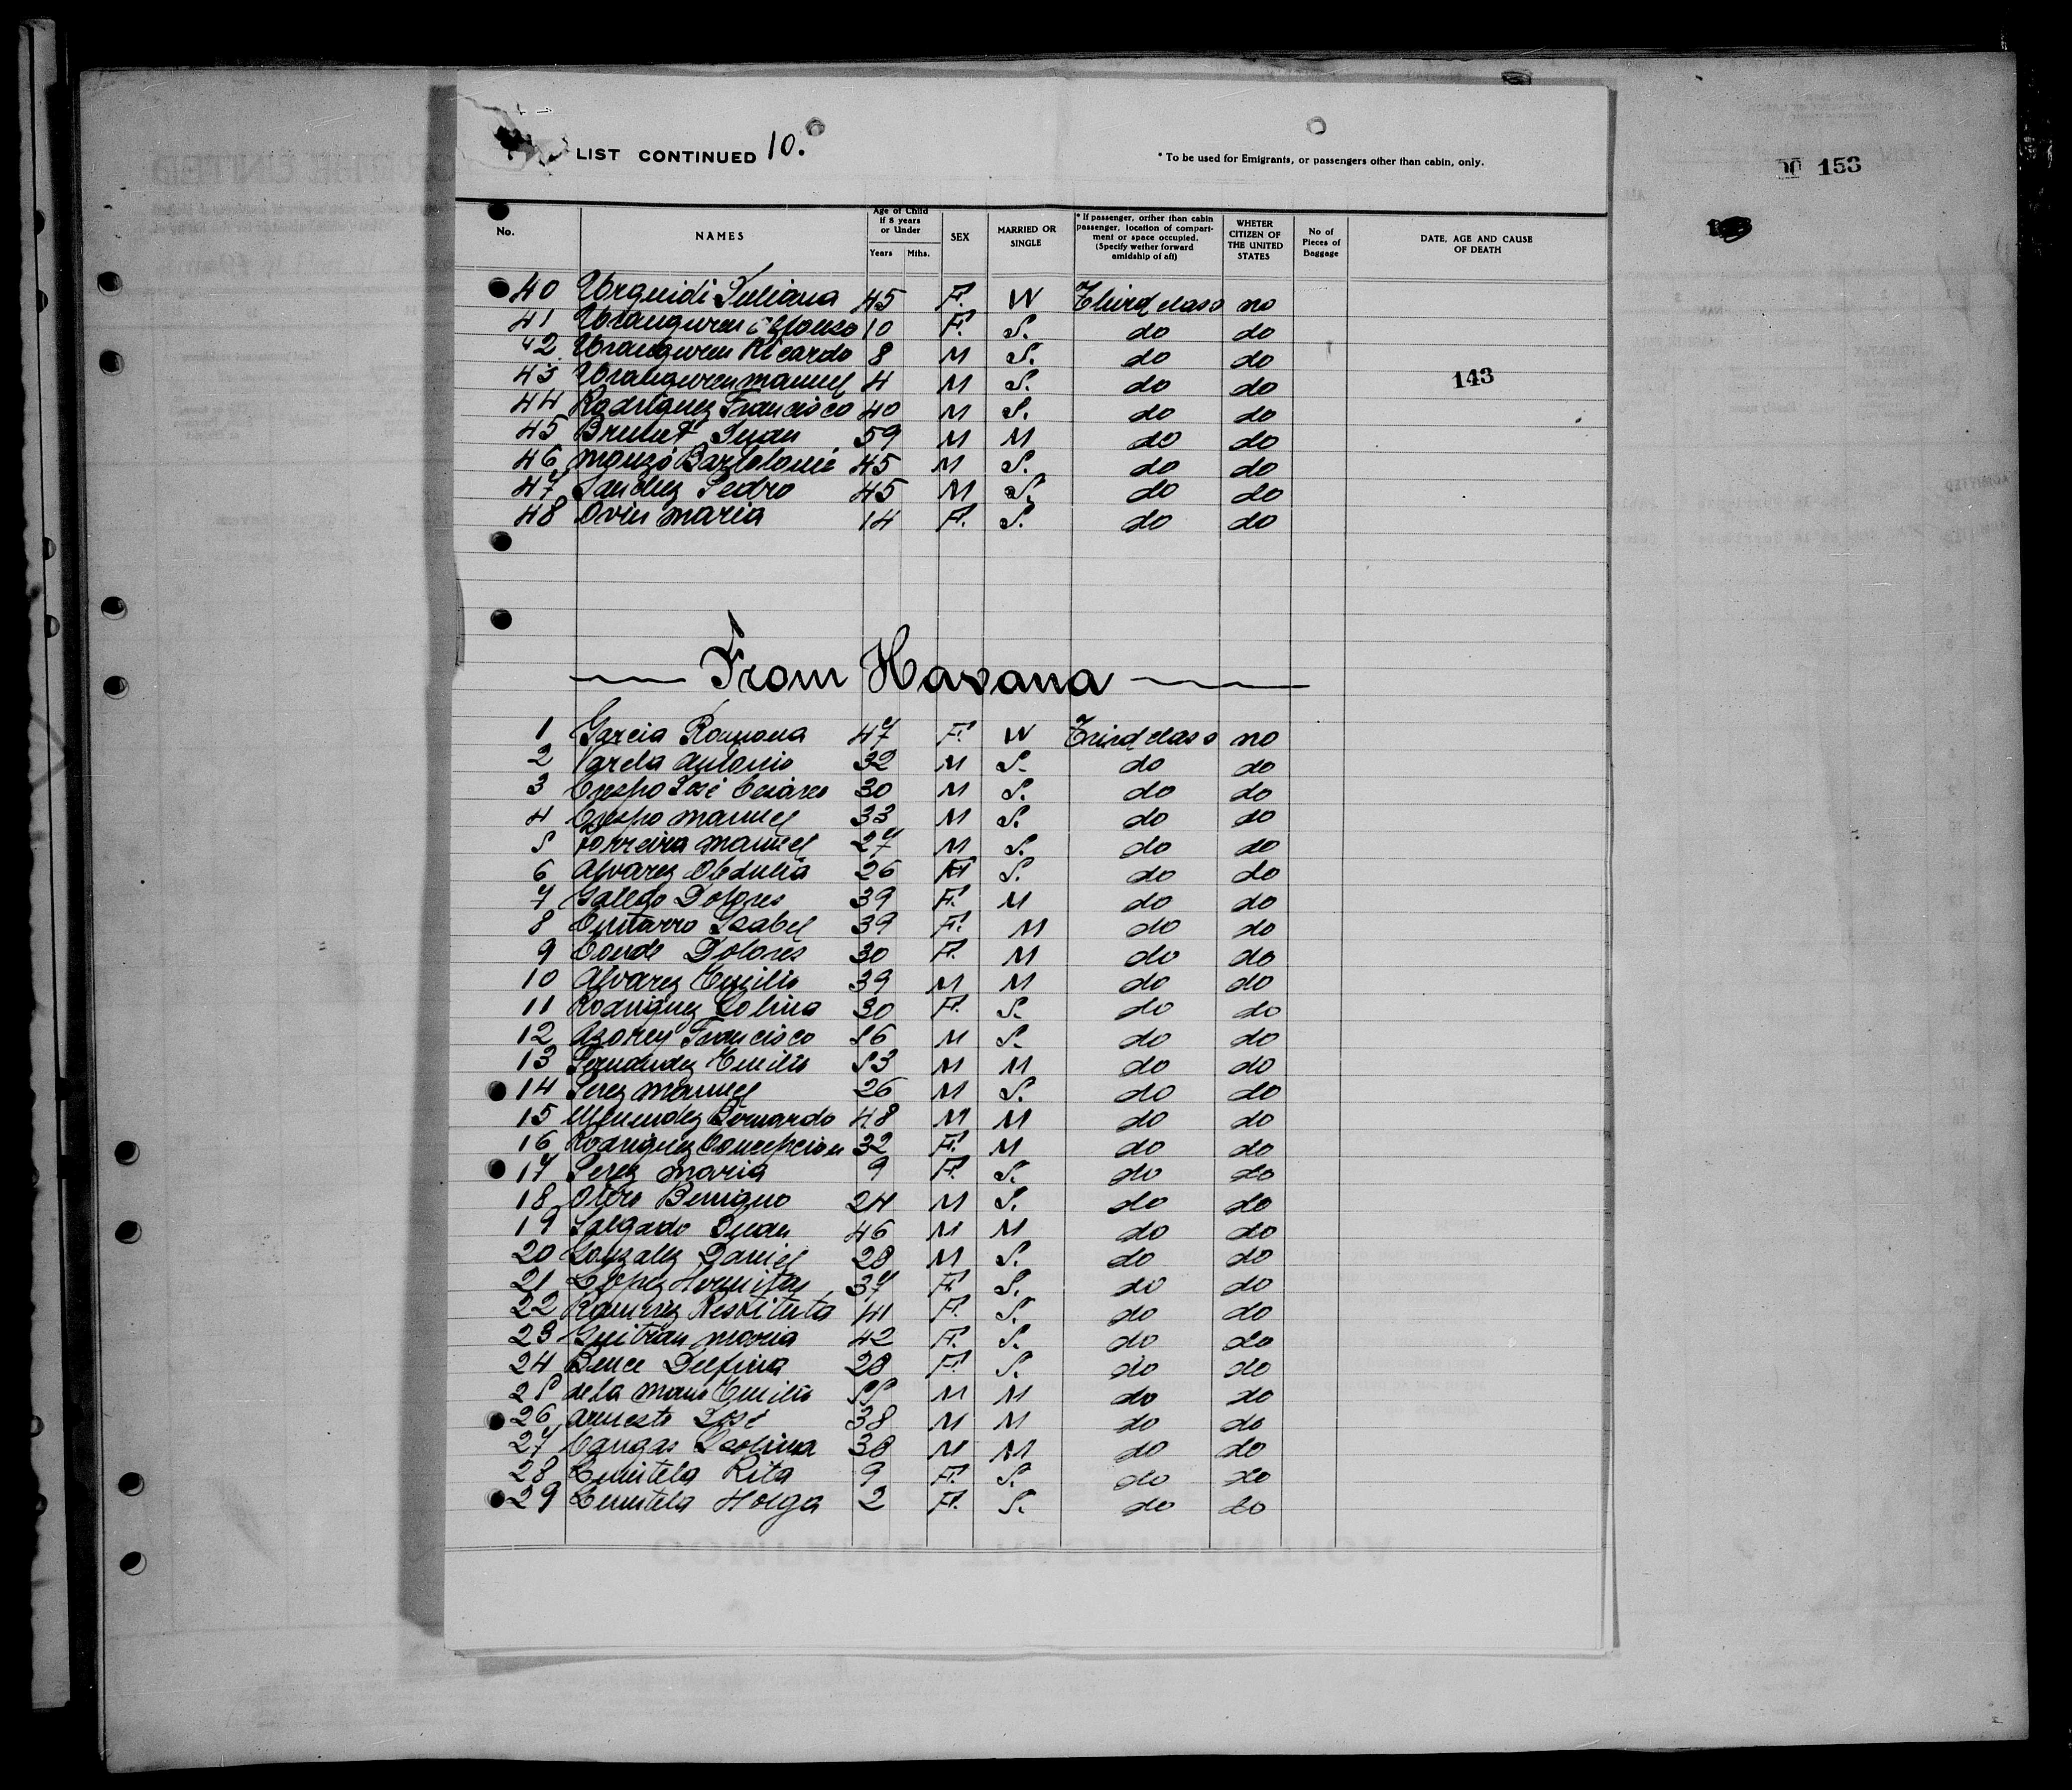 LIST CONTINUED 10.
* To be used for Emigrants, or passengers other than cabin, only.
153
No.
NAMES
Age of Child if 8 years or Under
Years Mths.
SEX
MARRIED OR SINGLE
* If passenger, orither than cabin passenger, location of compartment or space occupied. (Specify wether forward amidship of aft)
WHETER CITIZEN OF THE UNITED STATES
No of Pieces of Baggage
DATE, AGE AND CAUSE OF DEATH
40 Urquidi Juliana 45 F. W Third class no
41 Uranguren Alfonso 10 F. S. do do
42 Uranguren Ricardo 8 M S. do do
43 Uranguren manuel 4 M S. do do
143
44 Rodriguez Francisco 40 M S. do do
45 Brunet Juan 59 M M do do
46 Bartolomé 45 M S. do do
47 Sanchez Pedro 45 M S. do do
48 Ovin maria 14 F. S. do do
From Havana
1 Garcia Ramona 47 F. W Third class no
2 Varela Antonio 32 M S. do do
3 Crespo José Cesareo 30 M S. do do
4 Crespo manuel 33 M S. do do
5 Ferreira manuel 27 M S. do do
6 Alvarez Obdulia 26 S. do do
7 Galego Dolores 39 F. M do do
8 Isabel 39 F. M do do
9 Conde Dolores 30 F. M do do
10 Alvarez Emilio 39 M M do do
11 Rodriguez 30 F. S. do do
12 Francisco 56 M S. do do
13 Fernandez Emilio 53 M M do do
14 Perez manuel 26 M S. do do
15 Menendez Bernardo 48 M M do do
16 Rodriguez Concepcion 32 F. M do do
17 Perez maria 9 F. S. do do
18 Otero Benigno 24 M S. do do
19 Salgado Juan 46 M M do do
20 Gonzalez Daniel 28 M S. do do
21 Lopez 37 F. S. do do
22 Ramirez Restituta 41 F. S. do do
23 Guitian maria 42 F. S. do do
24 Delfina 28 F. S. do do
25 de la Emilio 55 M M do do
26 Armesto José 38 M M do do
27 Cangas Isolina 38 M M do do
28 Quintela Rita 9 F. S. do do
29 Quintela Holga 2 F. S. do do